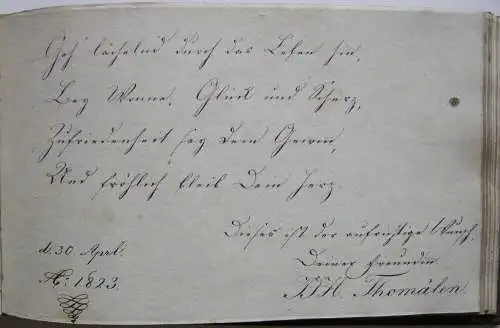 Geh' lächelnd durch das Leben hin,
Bey Wonne, Glück und Scherz,
Zufriedenheit sey Dein Gewinn,
Und fröhlich bleib Dein Herz.
Dieses ist der aufrichtige Wunsch
Deiner Freundin
d: 30 April.
Thomälen.
Aº: 1823.